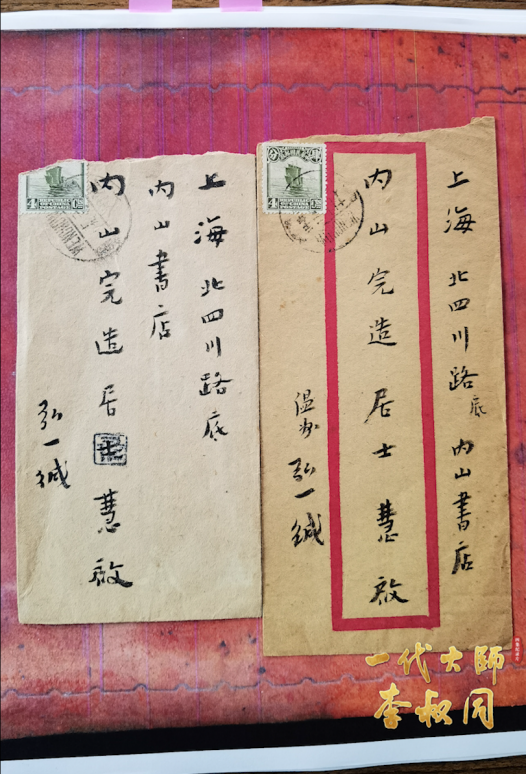 上海北四川路底内山書店
内山完造居士慧啟
温州弘一緘
上海北四川路底
内山書店
内山完造居慧啟
弘一緘
4
4
一代大師
李叔同